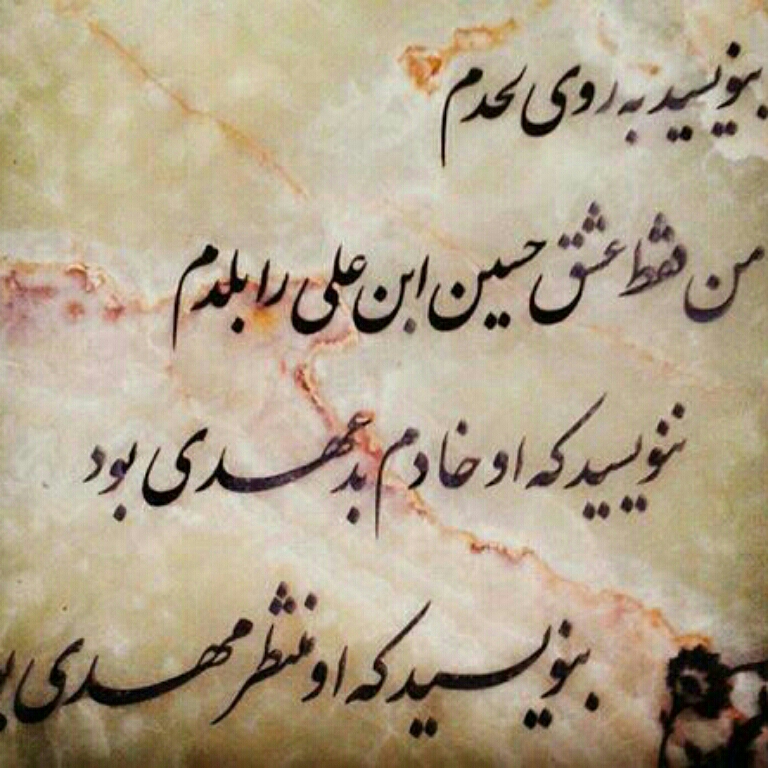 بنویسید به روی لحدم
من فقط عشق حسین ابن علی را بلدم
ننویسید که او خادم بد عهدی بود
بنویسید که او منتظر مهدی